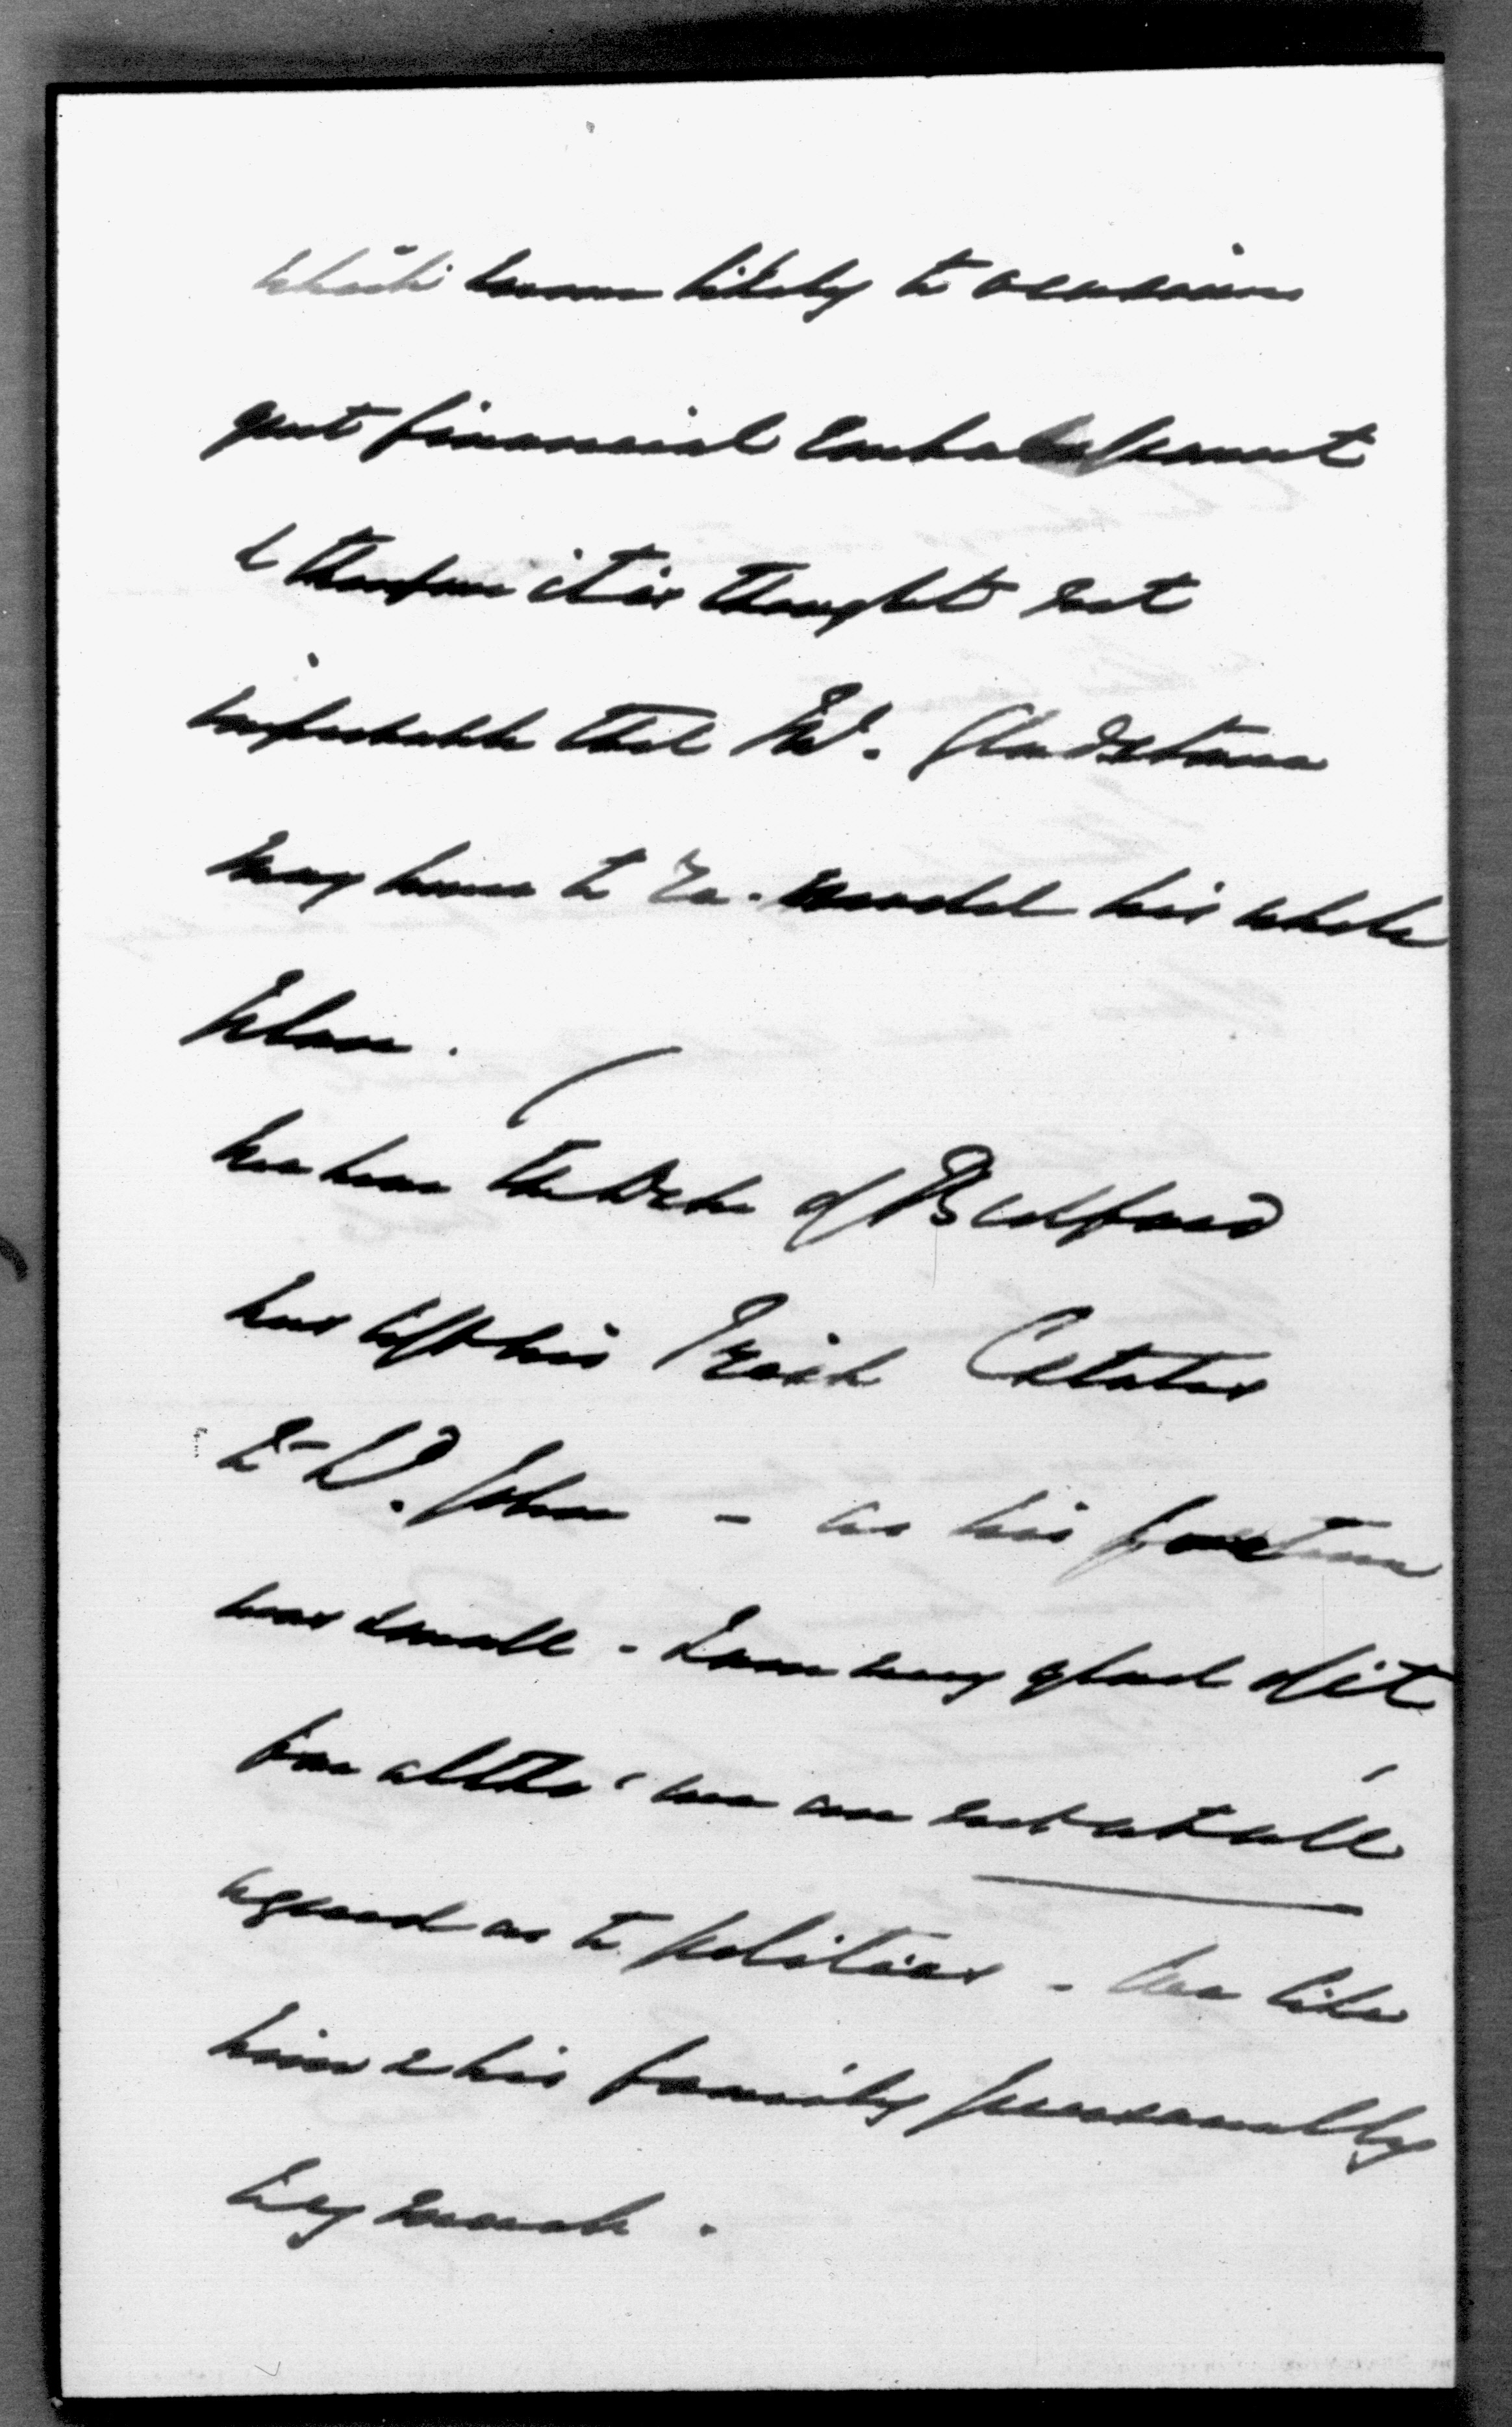 which seem likely to occasion
great financial embarrassment
& therefore it is thought not
improbable that Mr. Gladstone
may have to re-model his whole
plan.
We hear the Duke of Bedford
has left his Irish Estates
to Ld. John - as his fortune
was small - I am very glad of it
for altho' we are not at all
agreed as to politics - we like
him & his family personally
very much.